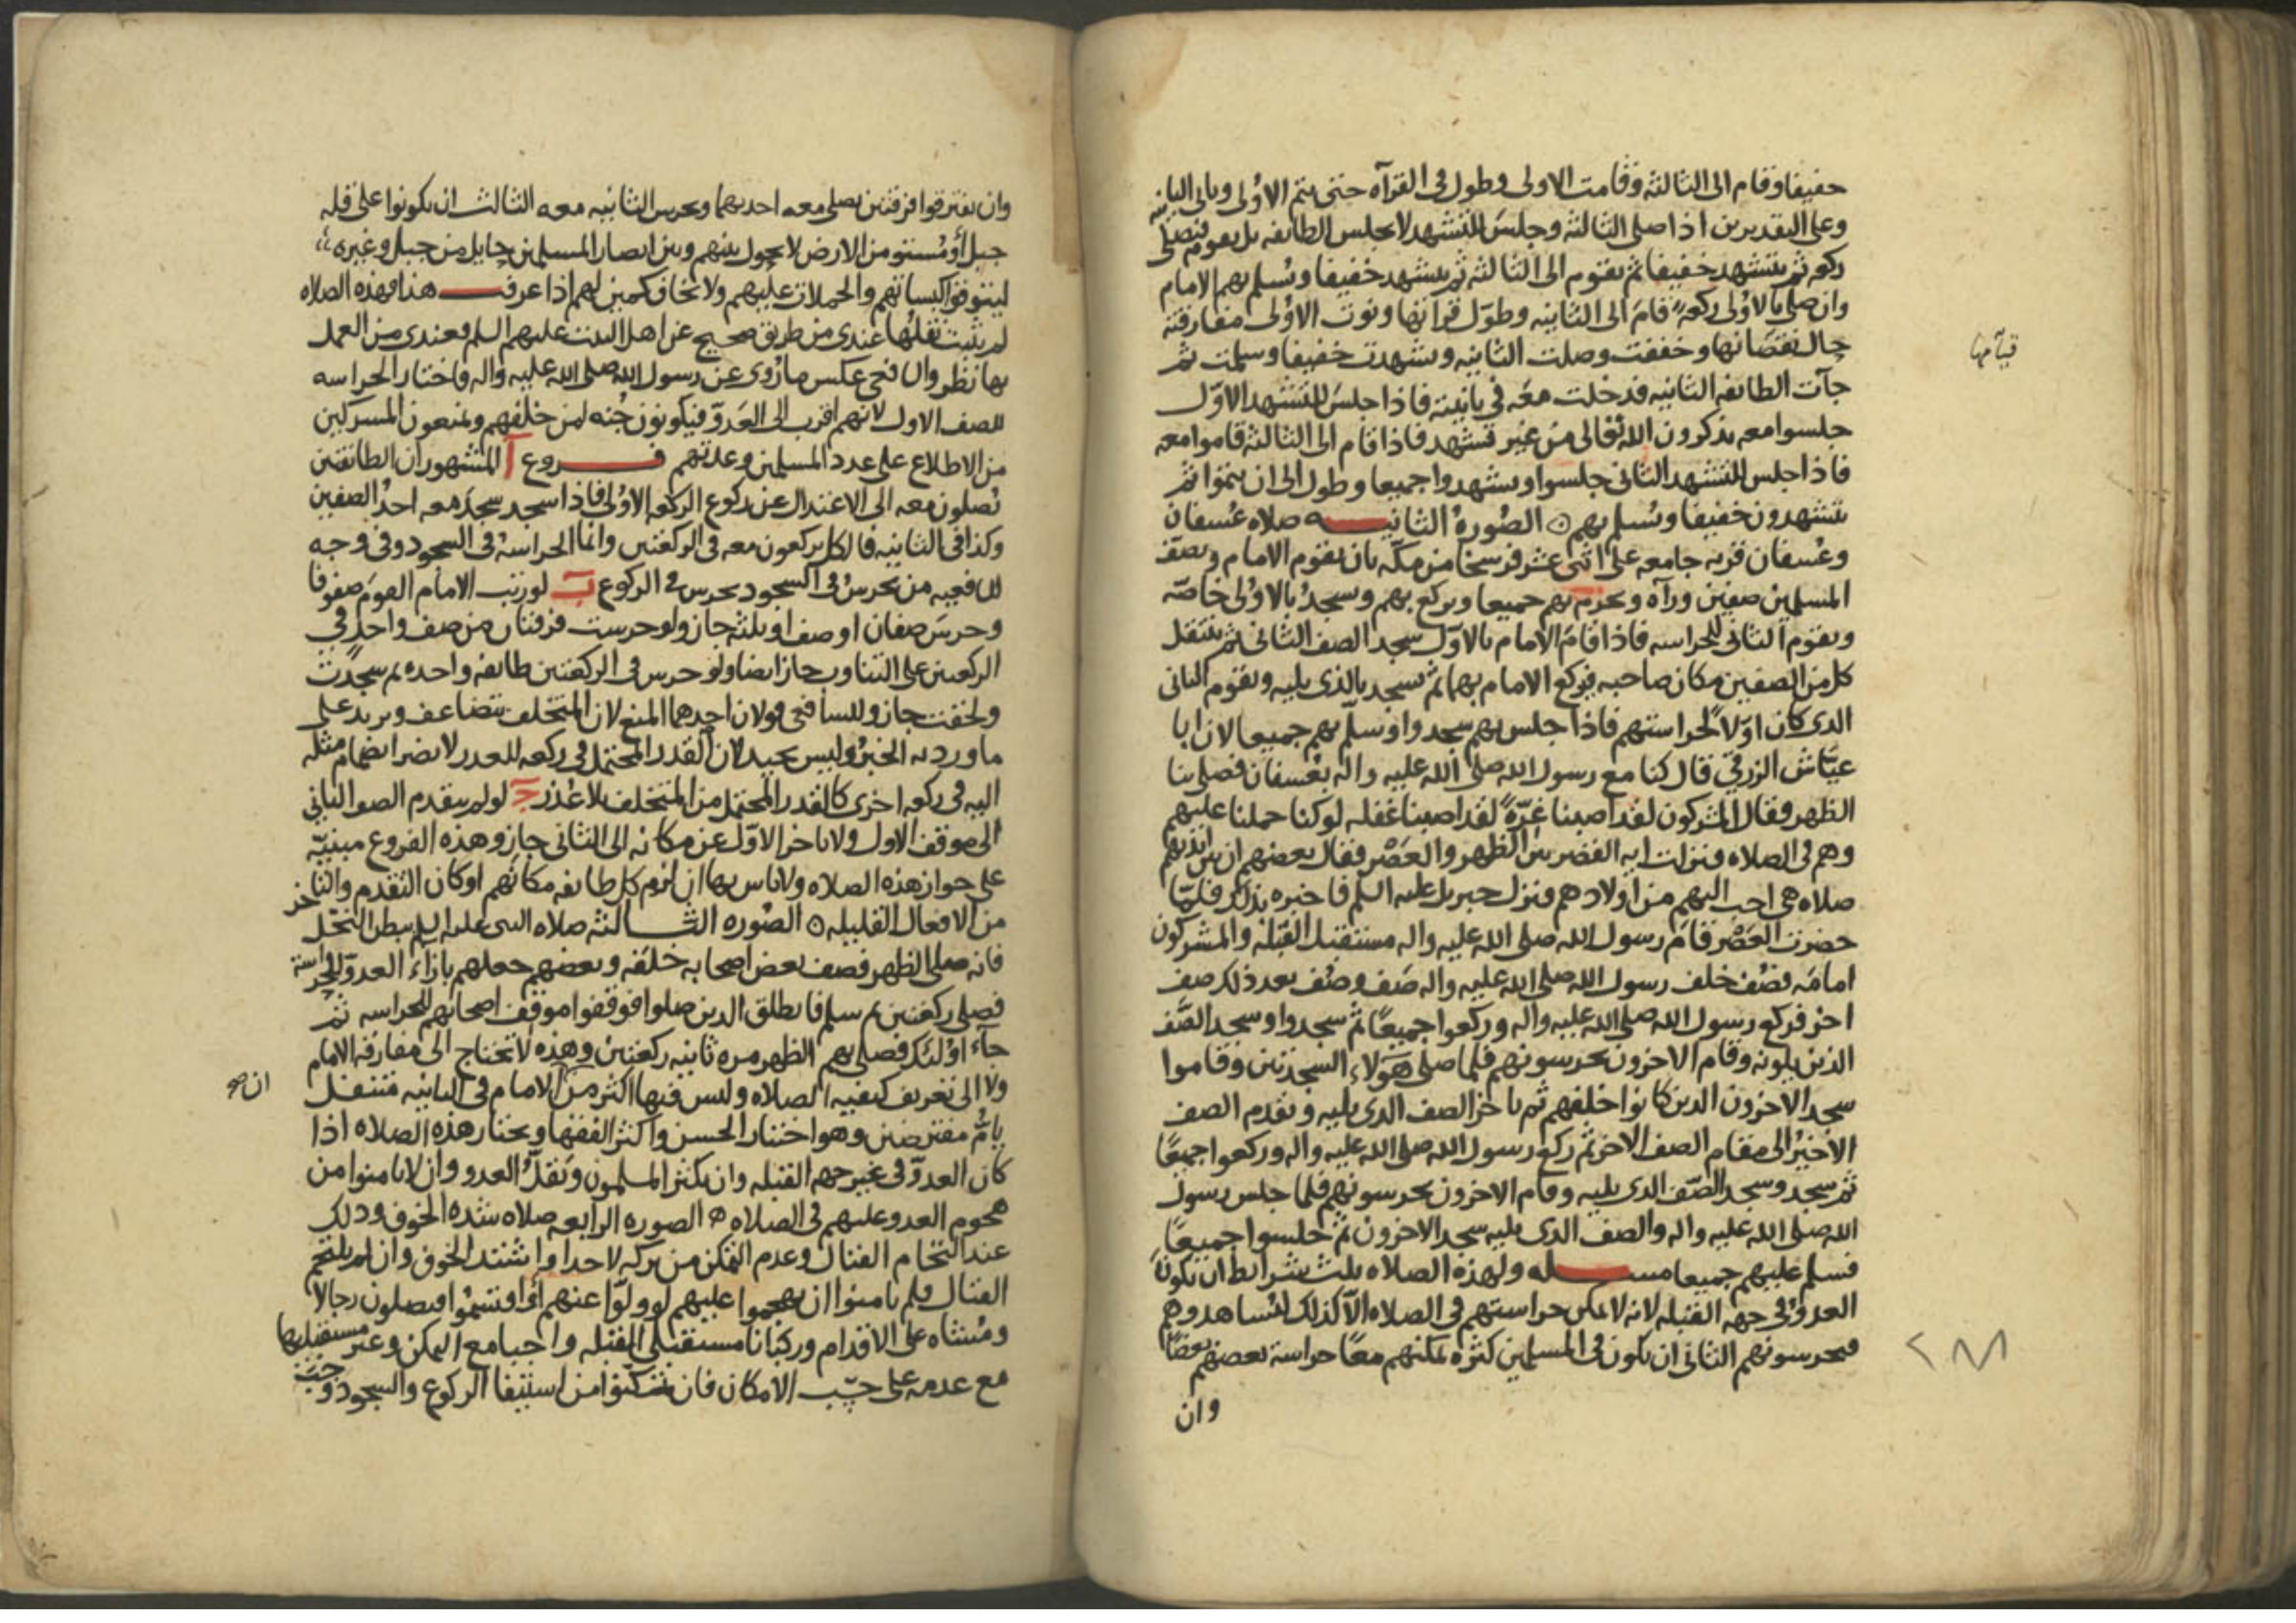 خفيفا وقام الى الثالثة وقامت الاولى وطول فى القراه حتى يتم الاولى وياتى الثانيه
وعلى التقديرين اذا صلى الثالثة وجلس للتشهد لا يجلس الطائفه بل يقوم فتصلى
ركعه ثم يتشهد خفيفا ثم يقوم الى الثالثه ثم يتشهد خفيفا ويسلم بهم الامام
وان صلى بالاولى ركعة قام الى الثانيه وطول قرائتها ونوت الاولى مفارقته
حال نقضائها وخففت وصلت الثانيه وتشهدت خفيفا وسلمت ثم
قيامها
جآت الطائفه الثانيه فدخلت معه فى ثانيته فاذا جلس للتشهد الاول
جلسوا معه يذكرون الله تعالى من غير تشهد فاذا قام الى الثالثة قاموا معه
فاذا جلس للتشهد الثانى جلسوا وتشهدوا جميعا وطول الى ان يتموا ثم
يتشهدون خفيفا ويسلم بهم ن الصورة الثانيـه صلاه عسفان
وعسفان قريه جامعه على اثنى عشر فرسخا من مكة بان يقوم الامام ويصف
المسلمين صفين ورآه ويحرم بهم جميعا ويركع بهم ويسجد بالاولى خاصة
ويقوم الثانى للحراسه فاذا قام الامام بالاول سجد الصف الثانى ثم ينتقل
كل من الصفين مكان صاحبه فيركع الامام بهما ثم يسجد بالذى يليه ويقوم الثانى
الذى كان اولا لحراستهم فاذا جلس بهم سجدوا وسلم بهم جميعا لان ابا
عياش الزرقى قال كنا مع رسول الله صلى الله عليه واله بعسفان فصلى بنا
الظهر فقال المشركون لقد اصبنا غرة لقد اصبنا غفله لو كنا حملنا عليهم
وهم فى الصلاه فنزلت ايه القصر بين الظهر والعصر فقال بعضهم ان بين ايديهم
صلاه هى احب اليهم من اولادهم فنزل جبريل عليه السلم فاخبره بذلك فلما
حضرت العصر قام رسول الله صلى الله عليه واله مستقبل القبله والمشركون
امامه فصف خلف رسول الله صلى الله عليه واله صف وصف بعد ذلك صف
اخر فركع رسول الله صلى الله عليه واله وركعوا جميعا ثم سجدوا وسجد الصف
الذين يلونه وقام الاخرون يحرسونهم فلما صلى هولاء السجدتين وقاموا
سجد الاخرون الذين كانوا خلفهم ثم تاخر الصف الذى يليه وتقدم الصف
الاخير الى مقام الصف الاخر ثم ركع رسول الله صلى الله عليه واله وركعوا جميعا
ثم سجد وسجد الصف الذى يليه وقام الاخرون يحرسونهم فلما جلس رسول
الله صلى الله عليه واله والصف الذى يليه سجد الاخرون ثم جلسوا جميعا
فسلم عليهم جميعا مسـله ولهذه الصلاه ثلث شرائط ان يكون
العدو فى جهه القبله لانه لا يمكن حراستهم فى الصلاه الا كذلك لتشاهدوهم
فيحرسونهم الثانى ان يكون فى المسلمين كثره يمكنهم معا حراسة بعضهم بعضا
وان
وان يفترقوا فرقتين يصلى معه احديهما ويحرس الثانيه معه الثالث ان يكونوا على قله
جبل أو مستو من الارض لا يحول بينهم وبين ابصار المسلمين حايل من جبل وغيره
ليتوقوا كبساتهم والحملات عليهم ولا يخاف كمين لهم اذا عرفـت هذا فهذه الصلاه
لم يثبت نقلها عندى من طريق صحيح عن اهل البيت عليهم السلم فعندى من العمل
بها نظر والشافعى عكس ما روى عن رسول الله صلى الله عليه واله واختار الحراسه
للصف الاول لانهم اقرب الى العدو فيكونون جنه لمن خلفهم ويمنعون المشركين
من الاطلاع على عدد المسلمين وعدتهم فـروع آ المشهور ان الطائفتين
يصلون معه الى الاعتدال عن ركوع الركعه الاولى فاذا سجد سجد معه احد الصفين
وكذا فى الثانيه فالكل يركعون معه فى الركعتين وانما الحراسه فى السجود وفى وجه
للشافعيه من يحرس فى السجود يحرس فى الركوع ب لو رتب الامام القوم صفوفا
وحرس صفان او صف او ثلثه جاز ولو حرست فرقتان من صف واحد فى
الركعتين على التناوب جاز ايضا ولو حرس فى الركعتين طائفه واحده ثم سجدت
ولحقت جاز وللشافعى قولان احدهما المنع لان المتخلف يتضاعف ويزيد على
ما ورد به الخبر وليس بجيد لان القدر المحتمل فى ركعه للعذر لا يضر انضمام مثله
اليه فى ركعه اخرى كالقدر المحتمل من المتخلف بلا عذر ج لو لم يتقدم الصف الثانى
الى موقف الاول ولا تاخر الاول عن مكانه الى الثانى جاز وهذه الفروع مبنية
على جواز هذه الصلاه ولا باس بها ان لزم كل طائفه مكانهم او كان التقدم والتاخر
من الافعال القليله ن الصوره الثـالثه صلاه النبى عليه السلم ببطن النخل
فانه صلى الظهر فصف بعض اصحابه خلفه وبعضهم جعلهم بازاء العدو للحراسة
فصلى ركعتين ثم سلم فانطلق الذين صلوا فوقفوا موقف اصحابهم للحراسه ثم
جاء اولئك فصلى بهم الظهر مره ثانيه ركعتين وهذه لا تحتاج الى مفارقه الامام
ولا الى تعريف كيفيه الصلاه وليس فيها اكثر من الامام فى الثانيه متنفل
ان صح
يام مفترضين وهو اختيار الحسن واكثر الفقها ويختار هذه الصلاه اذا
كان العدو فى غير جهه القبله وان يكثر المسلمون ويقل العدو وان لا يامنوا من
هجوم العدو عليهم فى الصلاه ه الصوره الرابعه صلاه شده الخوف وذلك
عند التحام القتال وعدم التمكن من تركه لاحد او اشتد الخوف وان لم يلتحم
القتال فلم يامنوا ان يهجموا عليهم لو ولوا عنهم أو اقتسموا فيصلون رجالا
ومشاه على الاقدام وركبانا مستقبلى القبله واجبا مع التمكن وغير مستقبليها
مع عدمه على حسب الامكان فان تمكنوا من استيفا الركوع والسجود وجب